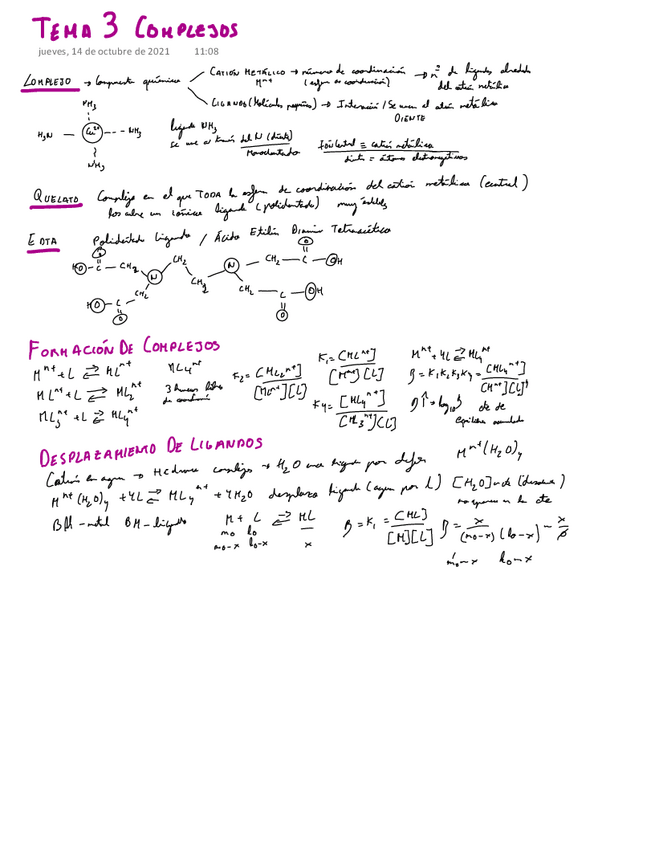 TEMA 3 COMPLEJOS
jueves, 14 de octubre de 2021 11:08
COMPLEJO → Compuesto químico
CATIÓN METÁLICO → número de coordinación → nº de ligandos alrededor
Mⁿ⁺ (esfera de coordinación) del catión metálico
LIGANDOS (Moléculas pequeñas) → Interacción / Se unen al catión metálico
DIENTE
NH₃
H₃N — Cu²⁺ --- NH₃
NH₃
ligando NH₃
se une a través del N (diente)
Monodentado
= catión metálico
diente = átomos electronegativos
QUELATO Complejo en el que TODA la esfera de coordinación del catión metálico (central)
los cubre un único ligando (polidentado) muy estables
EDTA Polidentado Ligando / Ácido Etilén Diamin Tetraacético
O O
HO – C – CH₂ CH₂ N CH₂ – C – OH
N CH₂
HO – C CH₂ CH₂ – C – OH
O O
FORMACIÓN DE COMPLEJOS
Mⁿ⁺ + L ⇄ MLⁿ⁺ ML₄ⁿ⁺
MLⁿ⁺ + L ⇄ ML₂ⁿ⁺ 3 huecos libres
de coordinación
ML₃ⁿ⁺ + L ⇄ ML₄ⁿ⁺
K₁ = [MLⁿ⁺] / [Mⁿ⁺][L]
K₂ = [ML₂ⁿ⁺] / [MLⁿ⁺][L]
K₄ = [ML₄ⁿ⁺] / [ML₃ⁿ⁺][L]
Mⁿ⁺ + 4L ⇄ ML₄ⁿ⁺
β = K₁K₂K₃K₄ = [ML₄ⁿ⁺] / [Mⁿ⁺][L]⁴
cte de
equilibrio acumulada
DESPLAZAMIENTO DE LIGANDOS
Catión en agua → complejo → H₂O una ligando por defecto Mⁿ⁺(H₂O)₄
Mⁿ⁺(H₂O)₄ + 4L ⇄ ML₄ⁿ⁺ + 4H₂O desplazo ligando (agua por L) [H₂O]
no aparece en la cte
BM – metal BM – ligando M + L ⇄ ML
m₀ l₀
m₀-x l₀-x x
β = K₁ = [ML] / [M][L]
β = x / (m₀-x)(l₀-x)
m₀-x l₀-x